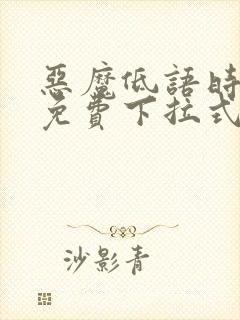 惡魔低語時
免費下拉式
沙影青